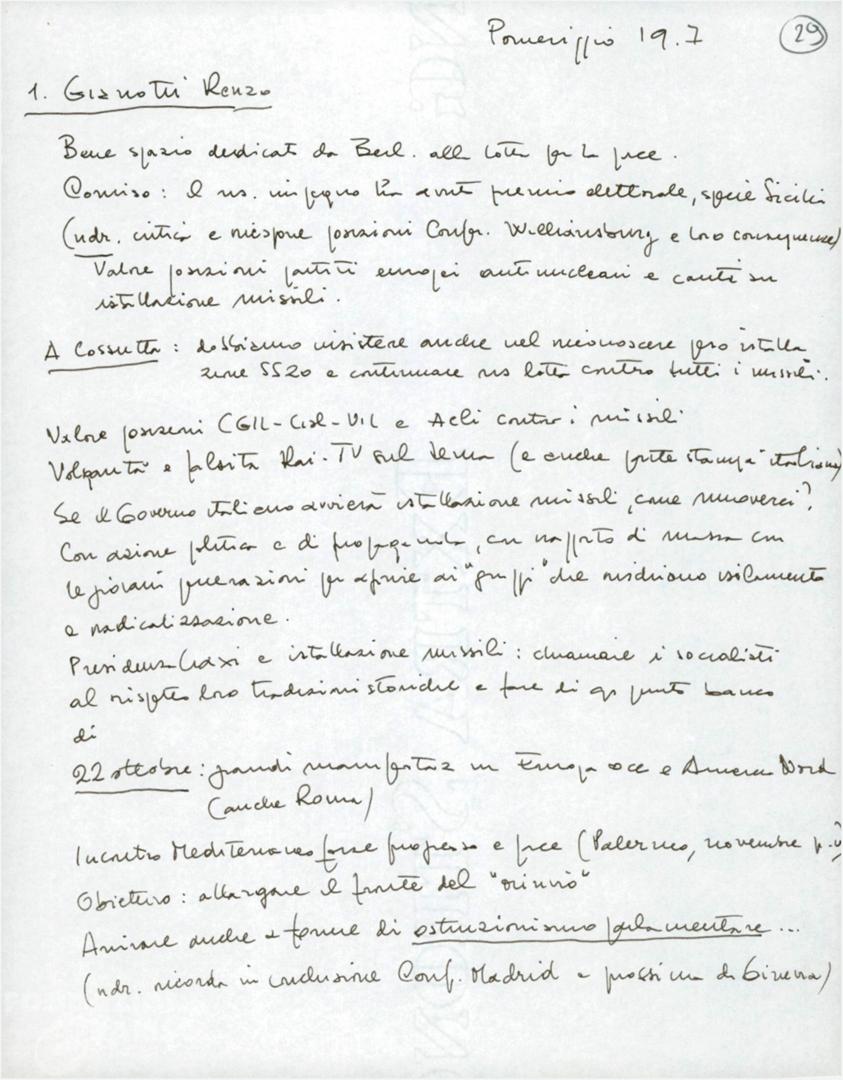 Pomeriggio 19.7
29
1. Gianotti Renzo
Bene spazio dedicato da Berl. alla lotta per la pace.
Comiso: il ns. impegno ha avuto premio elettorale, specie Sicilia
(ndr. critica e riespone posizioni Confer. Williamsburg e loro conseguenze)
Valore posizioni partiti europei antinucleari e cauti su
istallazione missili.
A Cossutta: dobbiamo insistere anche nel riconoscere istalla
zione SS20 e continuare ns lotta contro tutti i missili.
Valore posizioni CGIL-Cisl-UIL e Acli contro i missili
Volgarità e falsità Rai-TV sul tema (e anche parte stampa italiana)
Se il Governo italiano avvierà istallazione missili, come muoverci?
Con azione politica e di propaganda, con rapporto di massa con
le giovani generazioni per a "gruppi" che rischiano isolamento
e radicalizzazione.
Presidenza Craxi e istallazione missili: chiamare i socialisti
al rispetto loro tradizioni storiche e fare di qs punto banco
di
22 ottobre: grandi manifestaz in Europa occ e America Nord
(anche Roma)
Incontro Mediterraneo forze progresso e pace (Palermo, novembre p.v.)
Obiettivo: allargare il fronte del "rinvio"
Arrivare anche a forme di ostruzionismo parlamentare...
(ndr. ricorda in conclusione Conf. Madrid e prossima di Ginevra)